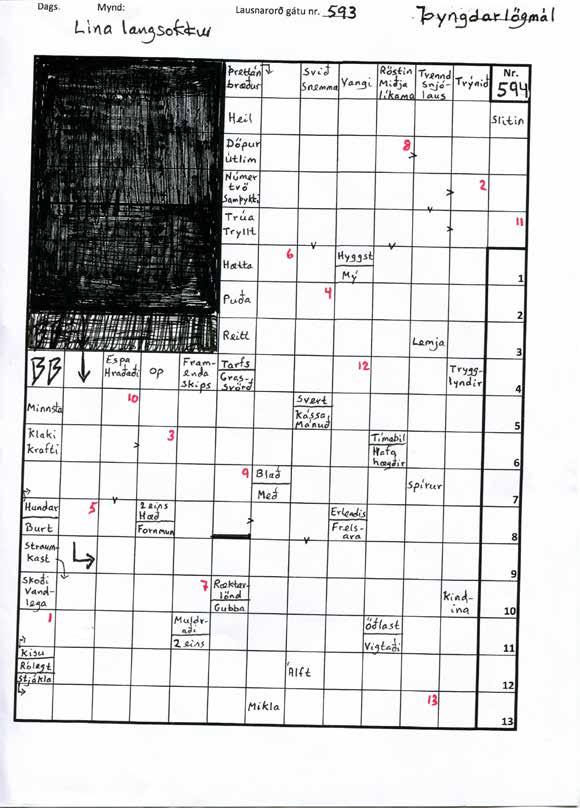 Dags. Mynd: Lausnarorð gátu nr. 593 Þyngdarlögmál
Lína langsokkur
Þrettán bræður
Svið Snemma
Vangi
Röstin Miðja líkama
Trennd Snjólaus
Trýnið
Nr. 594
Heil
Slitin
Döpur útlim
8
Númer tvö Samþykkti
2
Trúa Tryllt
11
Hætta
6
Hyggst Mý
1
Puða
4
2
Reitt
Lemja
3
BB
Espa Hraðaði
op
Framenda Skips
Tarfs Grassvörð
12
Trygglyndir
4
Minnsta
10
Svert Kássa, Mánuð
5
Klaki Krafti
3
Tímabil Hafa hægðir
6
9
Blað Með
Spírur
7
Hundar Burt
5
2 eins Hæð Fornmun
Erlendis Frelsara
8
Straumkast
9
Skoði Vandlega
7
Ræktarlönd Gubba
Kindina
10
1
Muldraði 2 eins
Öðlast Vigtaði
11
Kisu Rólegt Stjákla
Álft
12
Mikla
13
13